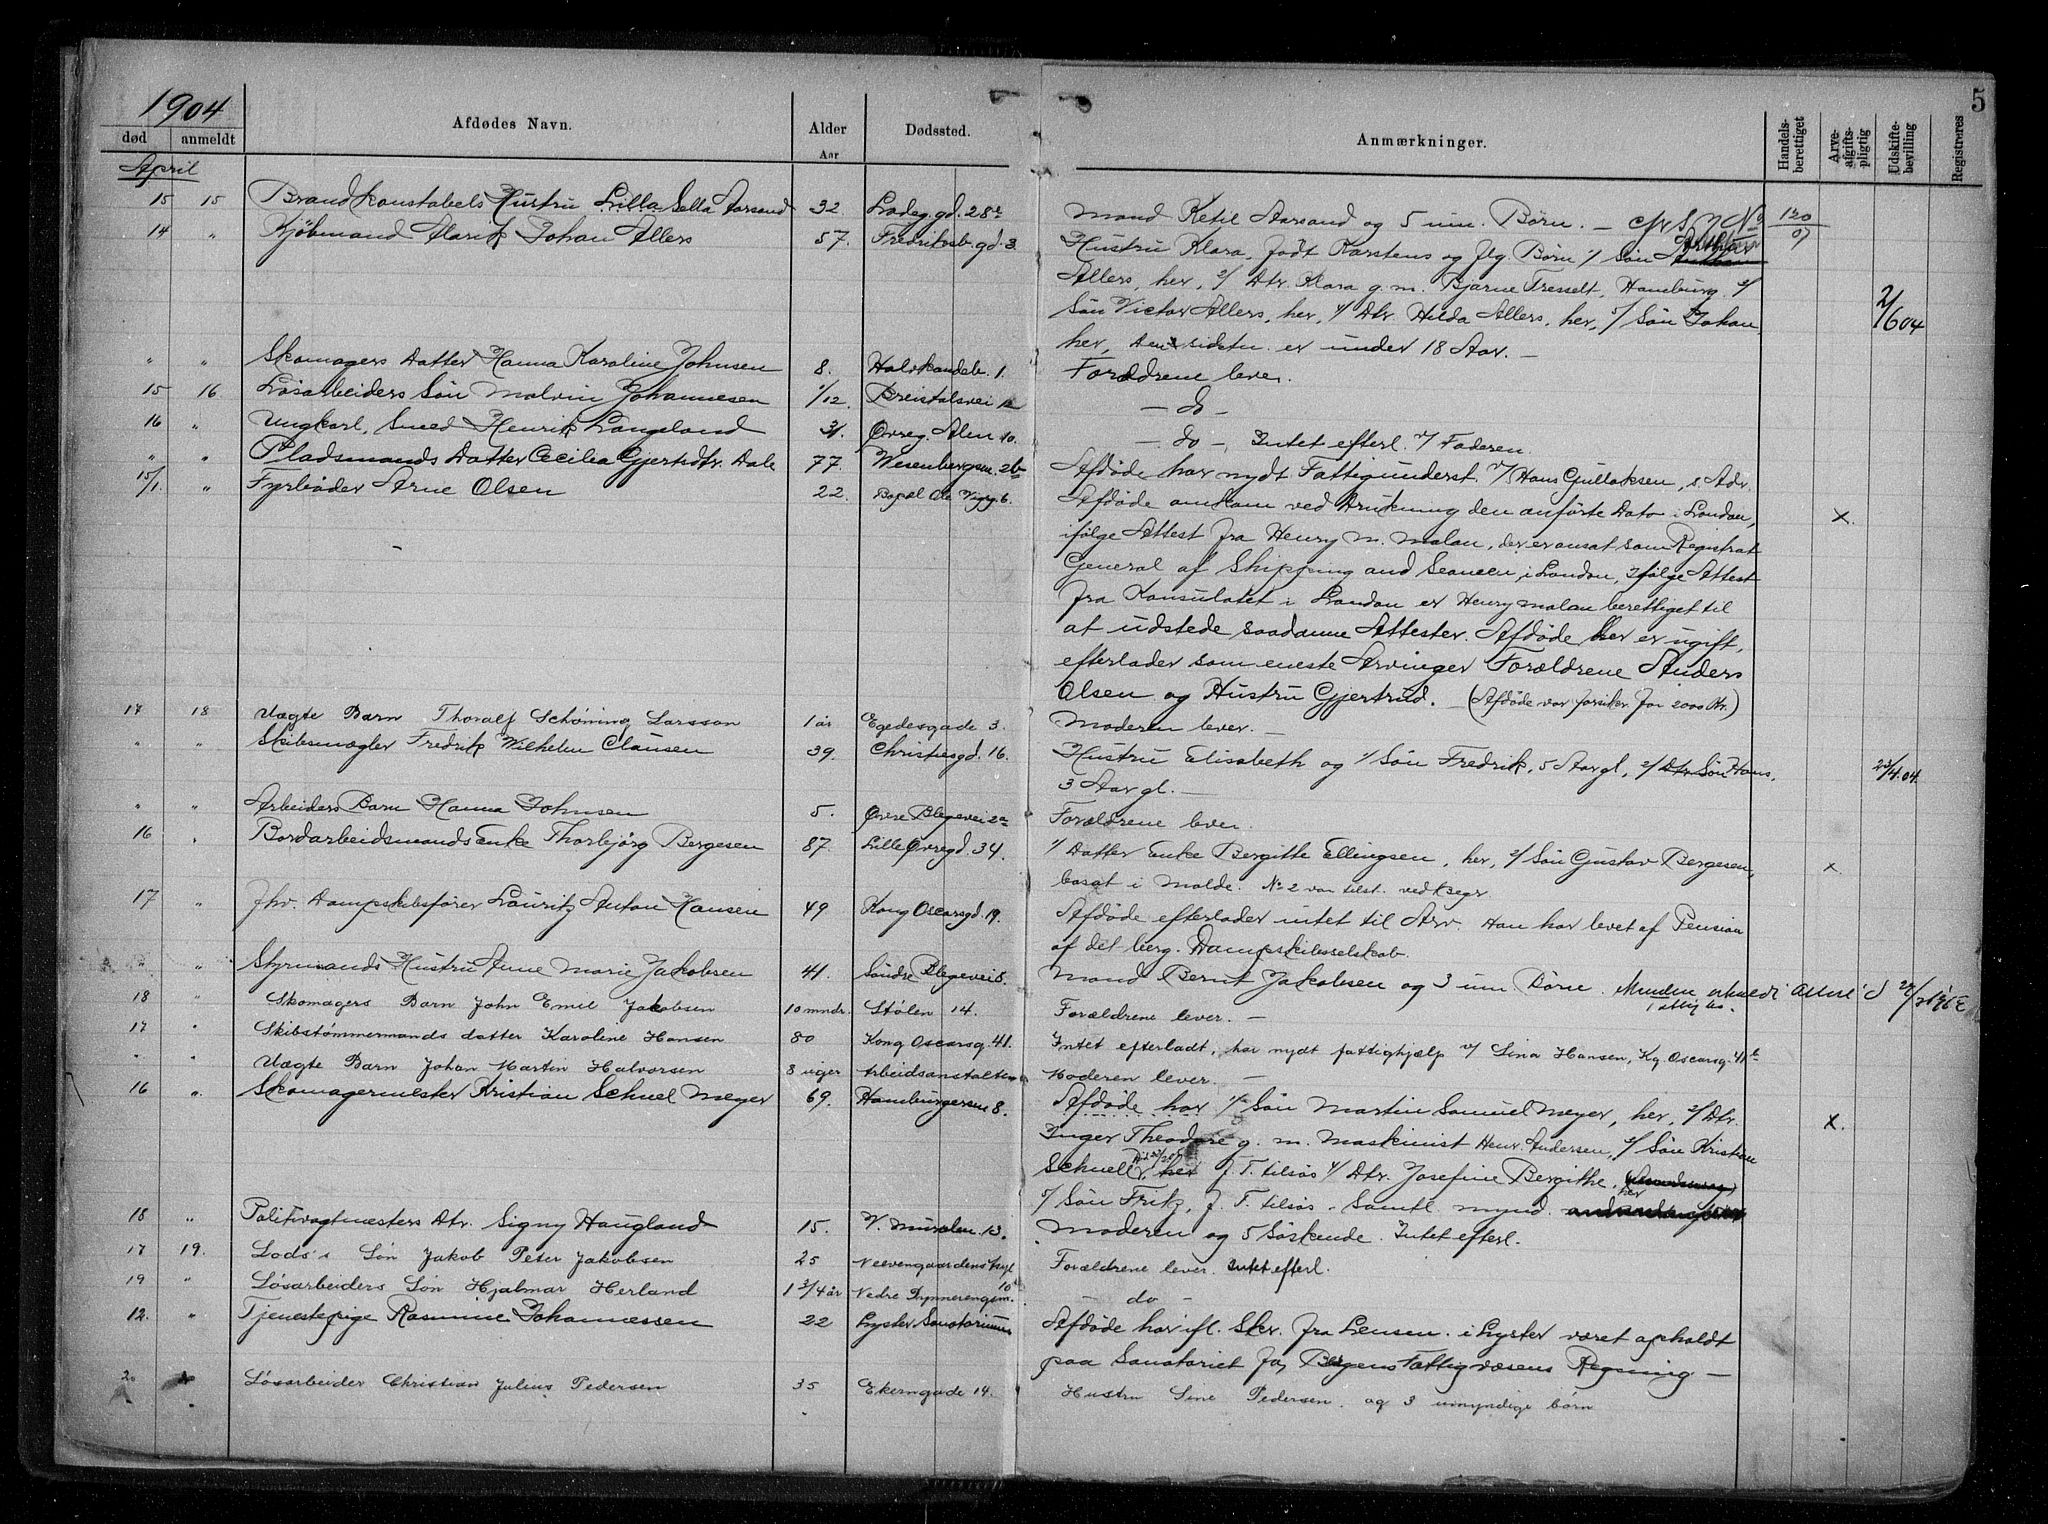 5
1904
død anmeldt Afdødes Navn. Alder Aar Dødssted. Anmærkninger. Handels-berettiget Arve-afgifts-pligtig Udskifte-bevilling Registreres
April
15 15 Brandkonstabels Hustru Lilla Sella Aarsand 32 Ladeg.gd. 28 Mand Ketil Aarsand og 5 um. Børn. — 120/07
14 " Kjøbmand Alarik Johan Allers 57. Fredriksb.gd. 3. Hustru Klara, født Karstens og flg. Børn 1/ Søn
Allers, her, 2/ Dtr. Klara g. m. Bjarne Tresselt, Hamburg. 3/
Søn Victor Allers, her, 4/ Dtr. Hilda Allers, her, 5/ Søn Johan 2/6 04
her, Den sidstn. er under 18 Aar. —
" " Skomagers Datter Hanna Karoline Johnsen 8. Halvkandeb. 1. Forældrene lever.
15 16 Løsarbeiders Søn Malvin Johannesen 1/12. Breistølsvei 12 — do —
16 " Ungkarl, Smed Henrik Langeland 31. Øvreg. Alen 10. — do —, Intet efterl. v/ Faderen.
" " Pladsmands Datter Cecilia Gjertsdtr. Dale 77. Wesenbergsm. 2b Afdøde har nydt Fattigunderst. v/ Hans Gullaksen, s. Adr.
15/1. " Fyrbøder Arne Olsen 22. Bopæl Ole Vigsg. 6. Afdøde omkom ved Drukning den anførte Dato i London, x.
ifølge Attest fra Henry M. Malan, der er ansat som Registrat
General af Shipping and Seamen, i London, Ifølge Attest
fra Konsulatet i London er Henry Malan berettiget til
at udstede saadanne Attester. Afdøde her er ugift,
efterlader som eneste Arvinger Forældrene Anders
Olsen og Hustru Gjertrud. — (Afdøde var forsikr. for 2000 Kr.)
17 18 Uægte Barn Thoralf Schøning Larsson 1 år Egedesgade 3. Moderen lever. —
" " Skibsmægler Fredrik Wilhelm Clausen 39 Christiesgd. 16. Hustru Elisabeth og 1/ Søn Fredrik, 5 Aar gl, 2/ Dtr Søn Hans, 23/4.04.
3 Aar gl. —
" " Arbeiders Barn Hanna Johnsen 5. Øvre Blegevei 2a Forældrene lever.
16 " Bordarbeidsmands Enke Thorbjørg Bergesen 87. Lille Øvregd. 34. 1/ Datter Enke Bergitte Ellingsen, her, 2/ Søn Gustav Bergesen, x.
bosat i Molde. No 2 var tilst. ved Begr
17 " Fhv. Dampskibsfører Lauritz Anton Hansen 49 Kong Oscarsgd. 19. Afdøde efterlader intet til Arv. Han har levet af Pension
af det berg. Dampskibsselskab.
" " Styrmands Hustru Anne Marie Jakobsen 41. Søndre Blegevei 8. Mand Bernt Jakobsen og 3 um. Børn.
18 " Skomagers Barn John Emil Jakobsen 10 mndr. Stølen 14. Forældrene lever. —
17 " Skibstømmermands datter Karoline Hansen 80 Kong Oscarsg. 41. Intet efterladt, har nydt fattighjælp v/ Lina Hansen, Kg. Oscarsg. 41
" " Uægte Barn Johan Martin Halvorsen 8 uger Arbeidsanstalten Moderen lever. —
16 " Skomagermester Kristian Schnel Meyer 69. Hamburgersm 8. Afdøde har 1/ Søn Martin Samuel Meyer, her, 2/ Dtr. x.
Inger Theodore g. m. Maskinist Henr. Andersen, 3/ Søn Kristian
Schnell, her f. T. tilsøs 4/ Dtr. Josefine Bergithe, her
5/ Søn Fritz, f. T. tilsøs. Samtl. mynd.
18 " Politivagtmesters Dtr. Signy Haugland 15. V. Muralen 13. Moderen og 5 Søskende. Intet efterl.
17 19. Lods's Søn Jakob Peter Jakobsen 25 Forældrene lever. Intet efterl.
19 " Løsarbeiders Søn Hjalmar Herland 1 3/4 år Nedre 10 — do —
12. " Tjenestepige Rasmine Johannessen 22 Lyster Sanatorium Afdøde har ifl. Skr. fra Lensm. i Lyster været opholdt
paa Sanatoriet for Bergens Fattigvæsens Regning —
20 Løsarbeider Christian Julius Pedersen 35 Ekerngade 14. Hustru Sine Pedersen og 3 umyndige børn